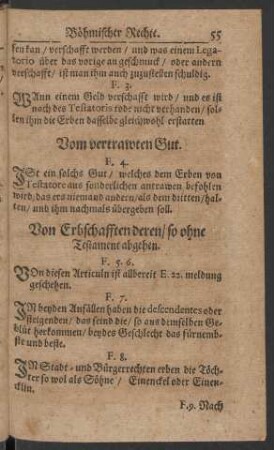 Böhmischer Rechte. 55
sen kan / verschafft werden / und was einem Lega-
torio über das vorige an geschmuck / oder andern
verschafft / ist man ihm auch zuzustellen schuldig.
F. 3.
WAnn einem Geld verschafft wird / und es ist
nach des Testatoris tode nicht verhanden / sol-
len ihm die Erben dasselbe gleichwohl erstatten
Vom vertrawten Gut.
F. 4.
IST ein solchs Gut / welches dem Erben von
Testatore aus sonderlichen antrawen befohlen
wird / das ers niemand anders / als dem dritten / hal-
ten / und ihm nachmals übergeben soll.
Von Erbschafften deren / so ohne
Testament abgehen.
F. 5. 6.
VOn diesen Articuln ist allbereit E. 22. meldung
geschehen.
F. 7.
IN beyden Anfällen haben die descendentes oder
steigenden / das seind die / so aus demselben Ge-
blüt herkommen / beydes Geschlecht das fürnemb-
ste und beste.
F. 8.
IN Stadt- und Bürgerrechten erben die Töch-
ter so wol als Söhne / Einenckel oder Einen-
cklin.
F. 9. Nach